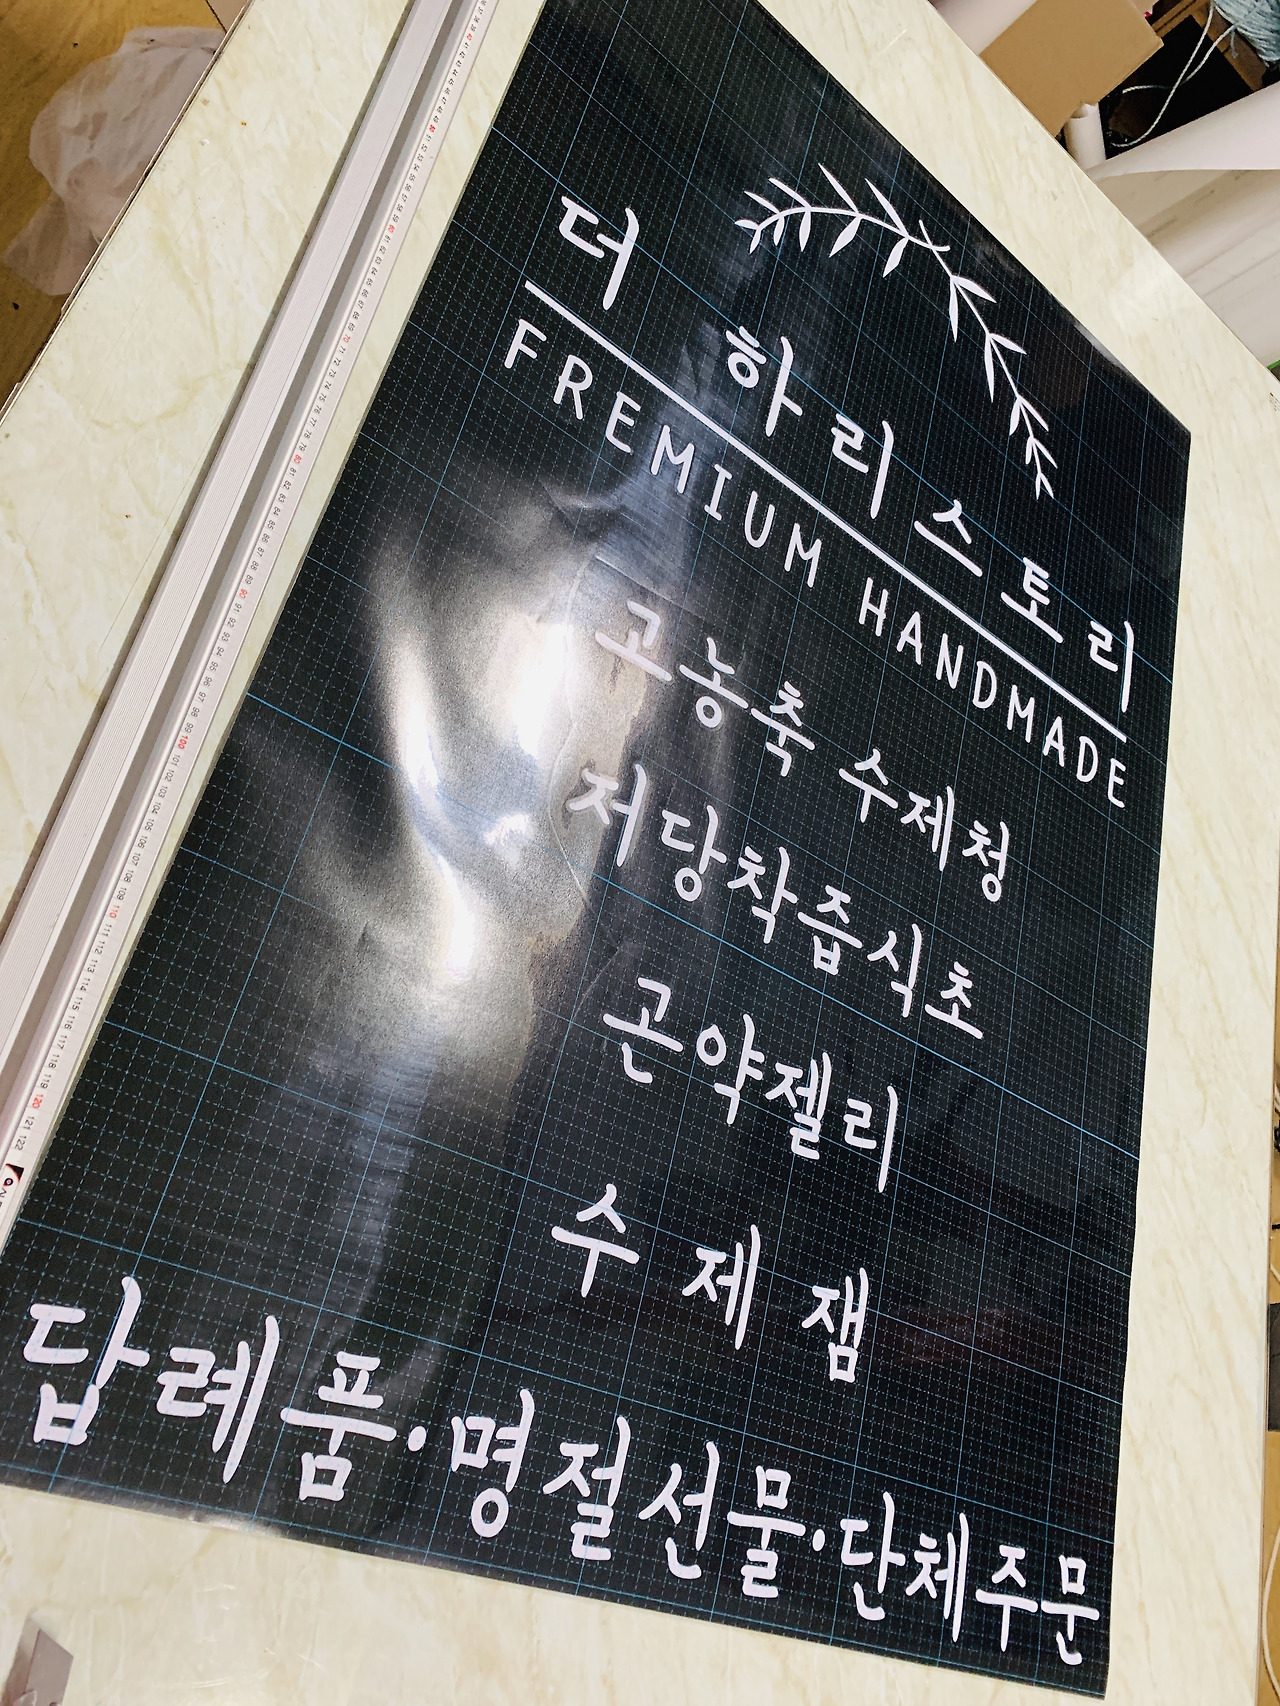 더 하리스토리
FREMIUM HANDMADE
고농축 수제청
저당착즙식초
곤약젤리
수제잼
답례품·명절선물·단체주문